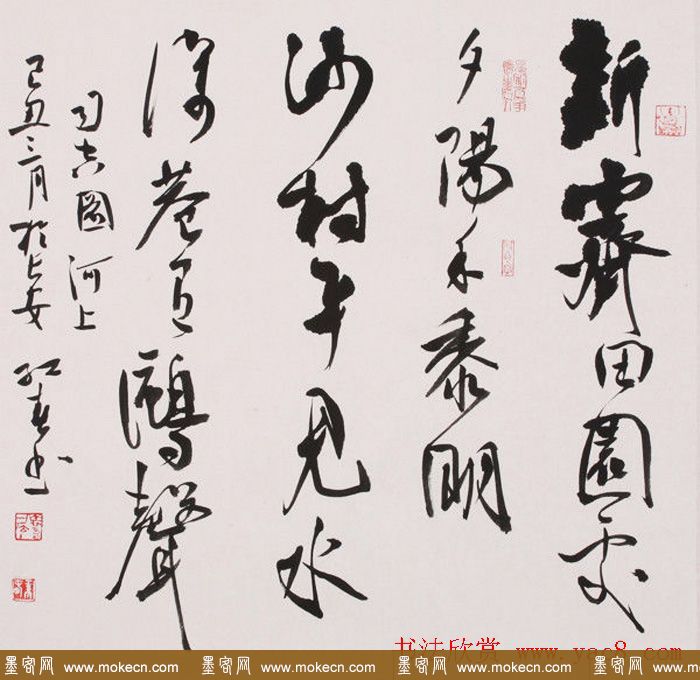 新霽田園處
夕陽禾黍明
沙村平見水
深巷有鷗聲
司空圖河上
己丑三月於長安 书
书法欣赏 www.yac8.com
墨客网 www.mokecn.com 墨客网 www.mokecn.com 墨客网 www.mokecn.com 墨客网 www.mokecn.com